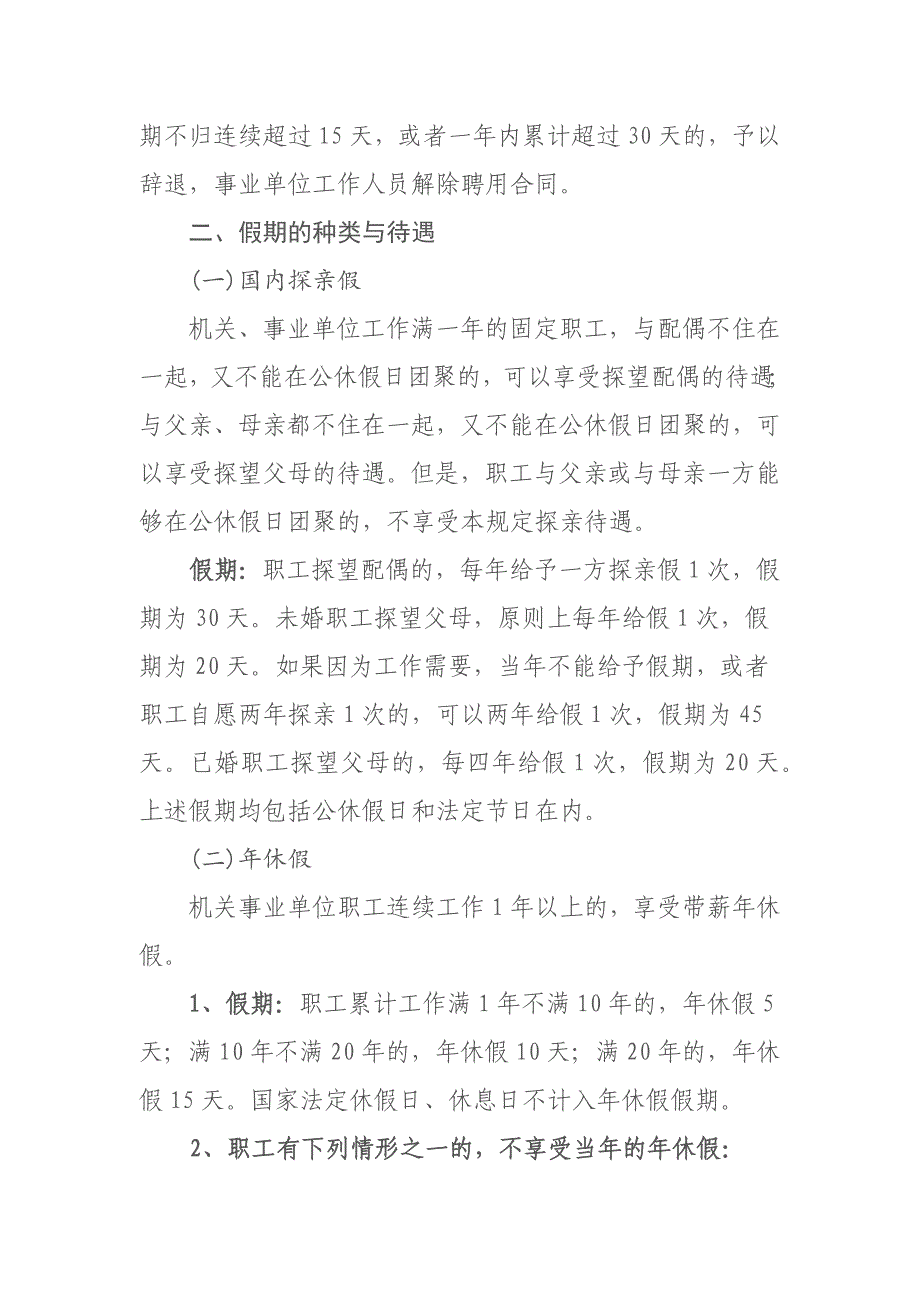 期不归连续超过 15 天，或者一年内累计超过 30 天的，予以
辞退，事业单位工作人员解除聘用合同。
二、假期的种类与待遇
(一)国内探亲假
机关、事业单位工作满一年的固定职工，与配偶不住在
一起，又不能在公休假日团聚的，可以享受探望配偶的待遇；
与父亲、母亲都不住在一起，又不能在公休假日团聚的，可
以享受探望父母的待遇。但是，职工与父亲或与母亲一方能
够在公休假日团聚的，不享受本规定探亲待遇。
假期：职工探望配偶的，每年给予一方探亲假 1 次，假
期为 30 天。未婚职工探望父母，原则上每年给假 1 次，假
期为 20 天。如果因为工作需要，当年不能给予假期，或者
职工自愿两年探亲 1 次的，可以两年给假 1 次，假期为 45
天。已婚职工探望父母的，每四年给假 1 次，假期为 20 天。
上述假期均包括公休假日和法定节日在内。
(二)年休假
机关事业单位职工连续工作 1 年以上的，享受带薪年休
假。
1、假期：职工累计工作满 1 年不满 10 年的，年休假 5
天；满 10 年不满 20 年的，年休假 10 天；满 20 年的，年休
假 15 天。国家法定休假日、休息日不计入年休假假期。
2、职工有下列情形之一的，不享受当年的年休假：